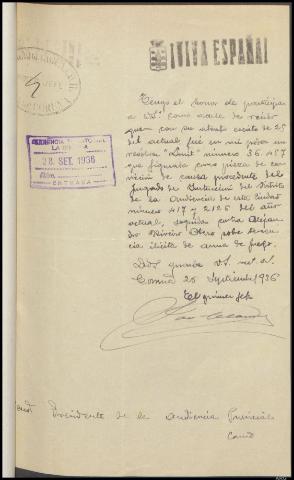 ¡VIVA ESPAÑA!
Tengo el honor de participar
a V.S. como acuse de recibo
que con su atento escrito de 25
del actual fué en mi poder un
revolver "Smit" numero 36.457
que figuraba como pieza de con-
vicción de causa procedente del
Juzgado de Instrucción del Distrito
de la Audiencia de esta Ciudad
número 417 y 2126 del año
actual, seguida contra Alejan-
dro Riveiro Otero sobre tenen-
cia ilícita de arma de fuego.
Dios guarde V.S. m. a.
Coruña 26 Septiembre 1936
El primer Jefe
28 SET. 1936
ENTRADA
Presidente de la Audiencia Provincial